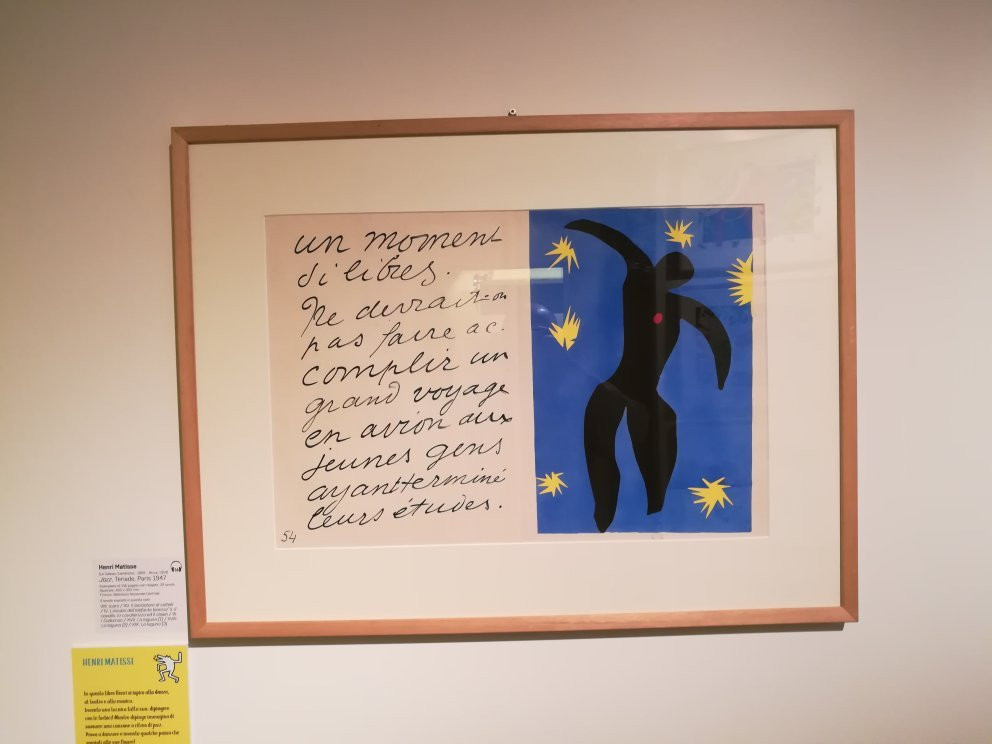 un moment
si libres.
Ne devrait-on
pas faire ac-
complir un
grand voyage
en avion aux
jeunes gens
ayant terminé
leurs études.
54
Henri Matisse
Jazz, Tériade, Paris 1947
HENRI MATISSE
In questo libro Henri si ispira alla danza,
al teatro e alla musica.
Inventa una tecnica tutta sua: dipingere
con le forbici! Mentre dipinge immagina di
suonare una canzone a ritmo di jazz.
Prova a danzare e inventa qualche passo che